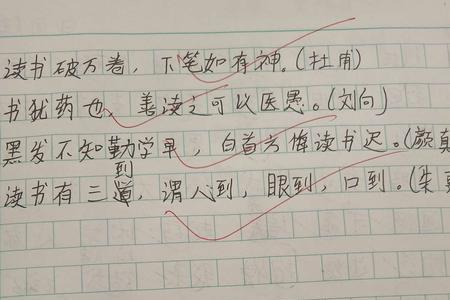 读书破万卷，下笔如有神。(杜甫)
书犹药也、善读之可以医愚。(刘向)
黑发不知勤学早，白首方悔读书迟。(颜真
到
读书有三道，谓心到，眼到，口到。(朱